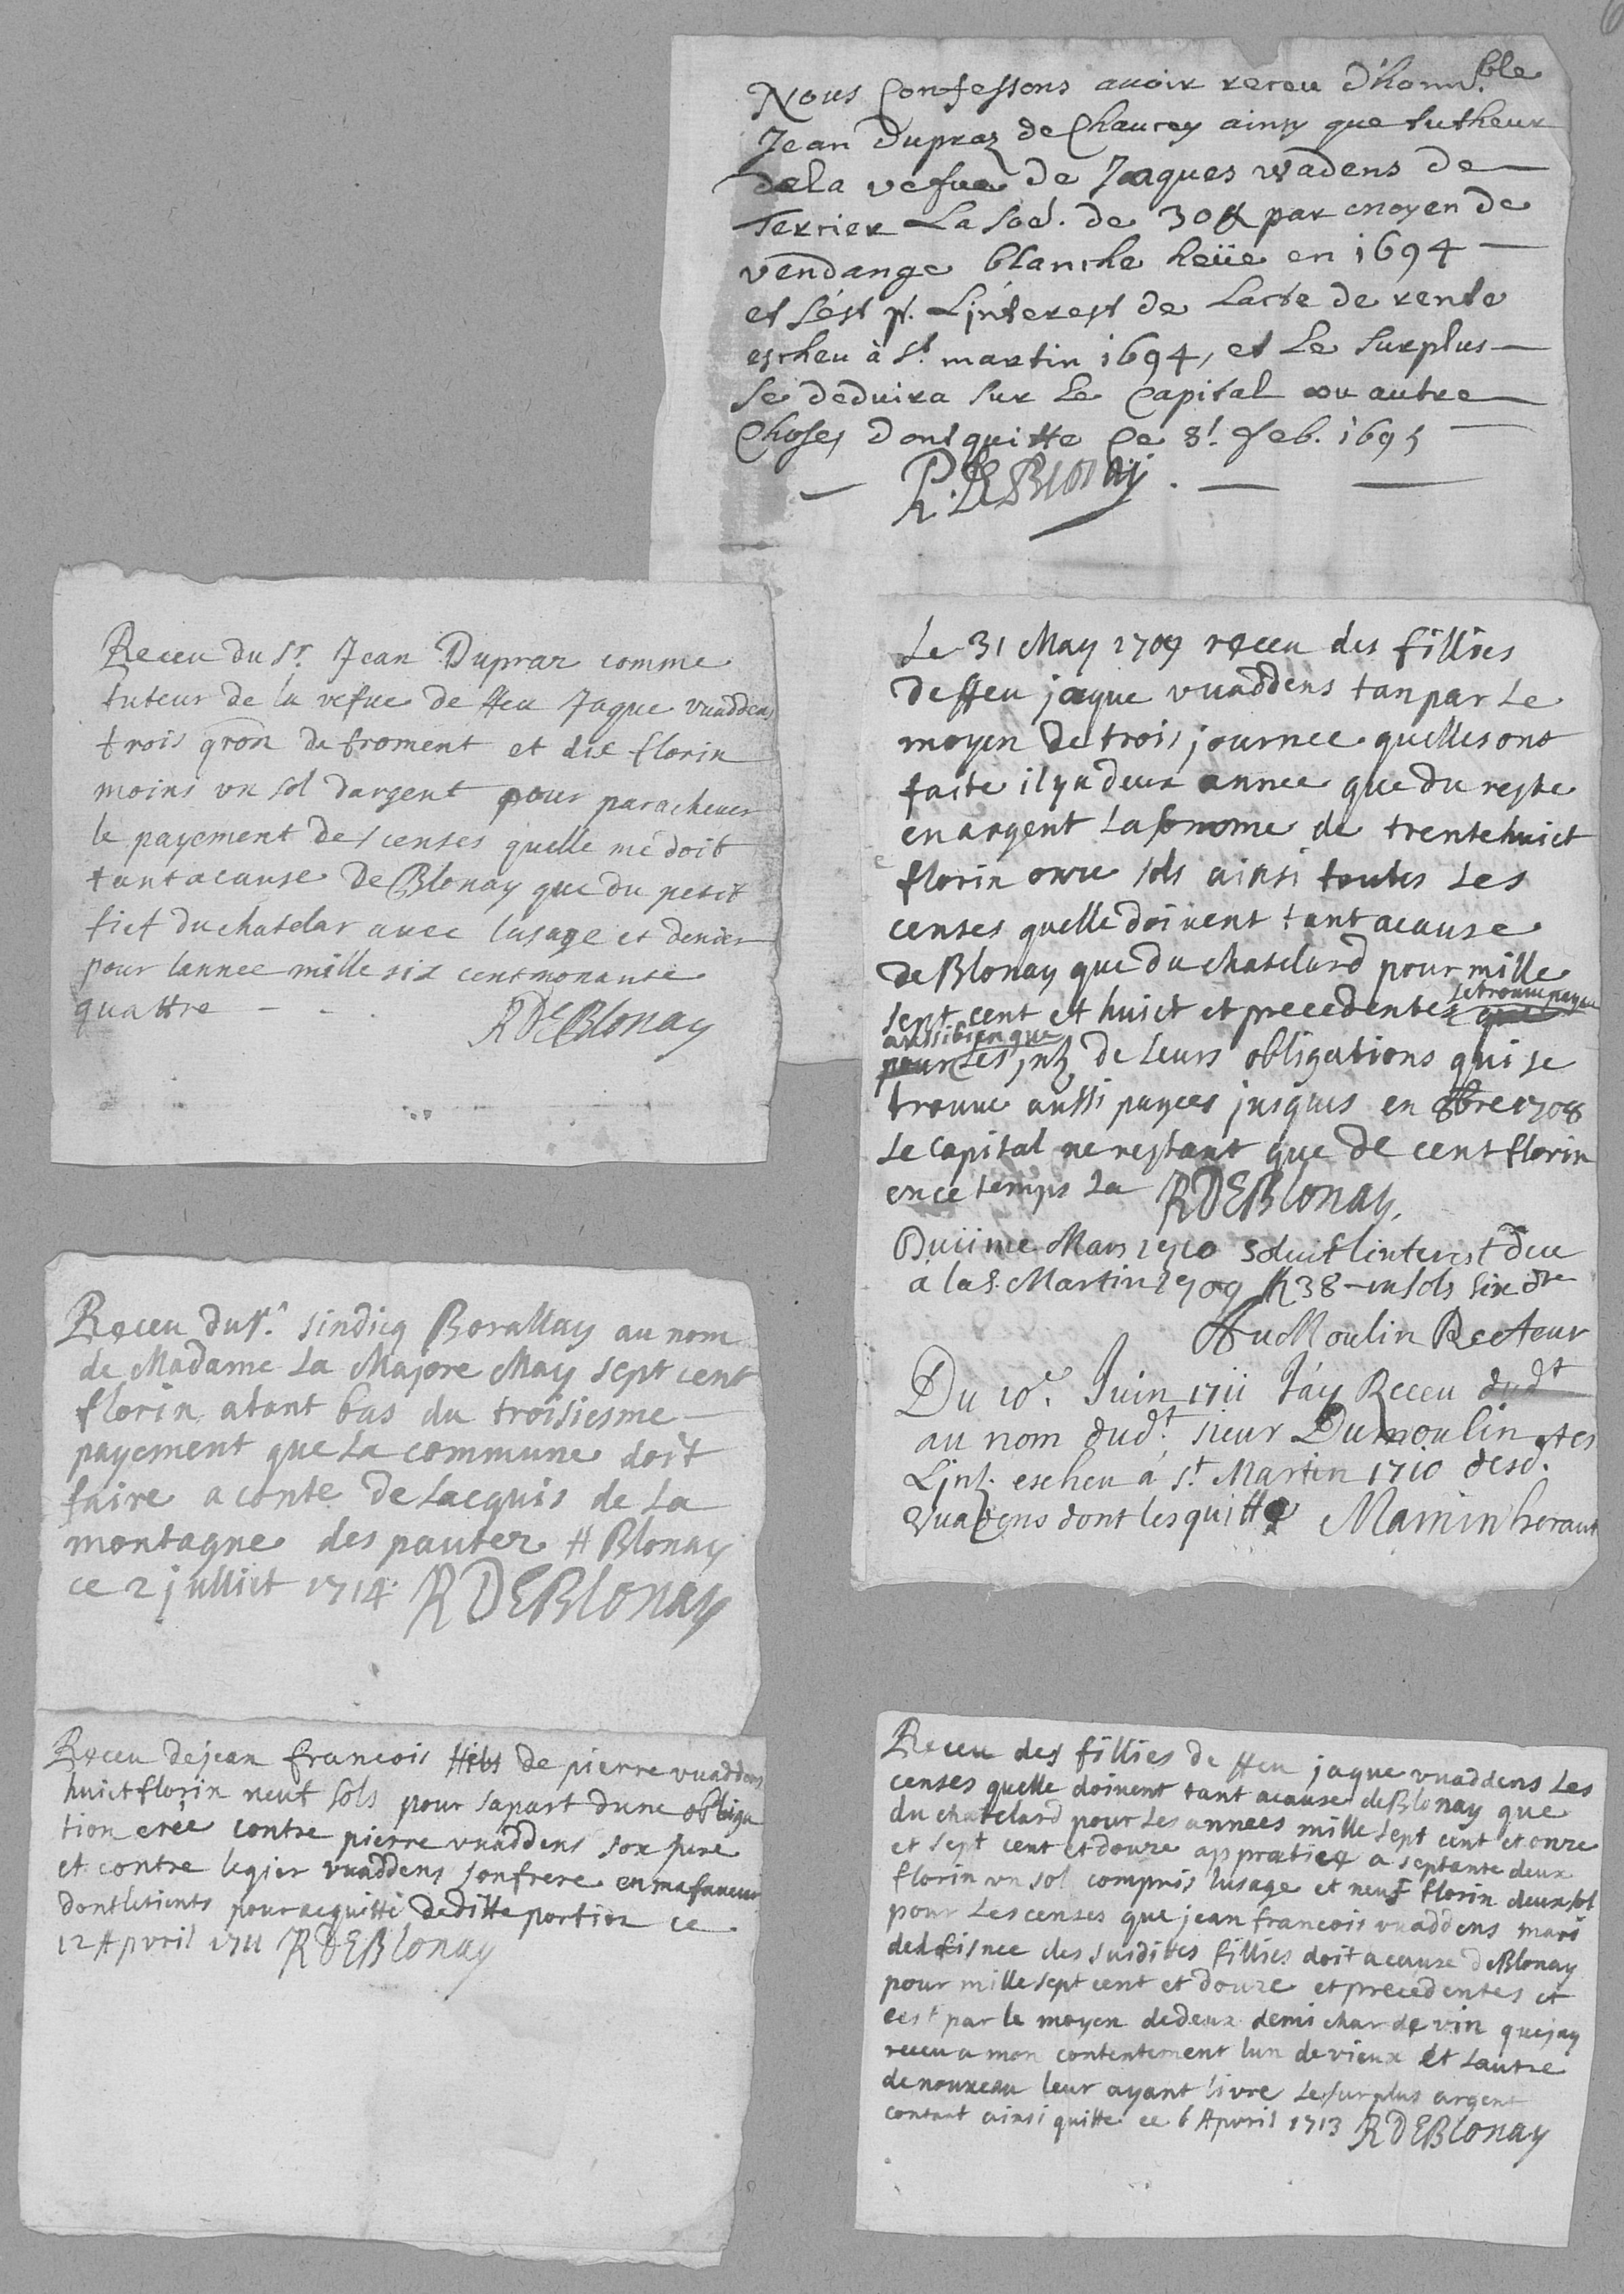 Nous Confessons auoir receu d'honn.ble
Jean Dupraz de Chaucey ainsy que tutheur
de la vefue de Jaques wadens de
Terrier La So.e de 30 ff par moyen de
vendange blanche heüe en 1694
et s'est p.r L'jnterest de Lacte de rente
escheu à St. martin 1694, et Le Surplus
se deduira sur Le Capital ou autre
Choses dont quitte Ce 8.e feb. 1695
R. DE Blonay
Receu du Sr. Jean Dupraz comme
tuteur de la vefue de ffeu Jaque vuaddens
trois qron de froment et dix florin
moins vn sol dargent pour paracheuer
le payement des censes quelle me doit
tant acause De Blonay que du petit
fief du chatelar auec lusage et denier
pour lannee mille six cent nonante
quattre
R De Blonay
Le 31 May 1709 receu des fillies
de ffeu jaque vuaddens tan par Le
moyen de trois journee quelles ont
faite il y a deux annee que du reste
en argent La somme de trente huict
florin onze sols ainsi toutes Les
censes quelle doiuent tant acause
de Blonay que du chatelard pour mille
sept cent et huict et precedentes se trouue payee
aussi bien que
pour Les jnt. de Leurs obligations qui se
trouue aussi payees jusques en 8bre 1708
Le Capital ne restant que de cent florin
en ce temps La R DE Blonay.
Du iime Mars 1710 soluit linterest deu
a la S. Martin 1709 ff 38 - un sols six dr
Du Moulin Recteur
Du 10.e Juin 1711 Jáy Receu dudt
au nom dudt. sieur Dumoulin
Ljnt. escheu á St Martin 1710 desd.
Vuadens dont les quitte Mamin heraut
Receu du Sr. sindicq Borallay au nom
de Madame La Majore May sept cent
florin atant bas du troisiesme
payement que La commune doit
faire a conte de Lacquis de La
montagne des pautez A Blonay
ce 2 jullict 1714. R DE Blonay
Receu de jean francois ffils de pierre vuaddens
huict florin neuf sols pour sa part dune obliga
tion crée contre pierre vuaddens son pere
et contre legier vuaddens son frere en ma faueur
dont le tients pour acquitté de ditte portion ce
12 Apvril 1711 R DE Blonay
Receu des fillies de ffeu jaque vuaddens Les
censes quelle doiuent tant acause de Blonay que
du chatelard pour Les annees mille sept cent et onze
et sept cent et douze appratiee a septante deux
florin vn sol compris lusage et neuf florin deux sol
pour Les censes que jean francois vuaddens mari
de Laisnee des susdittes fillies doit acause de Blonay
pour mille sept cent et douze et precedentes et
cest par le moyen de deux demi char de vin que jay
receu a mon contentement lun de vieux et Lautre
de nouueau leur ayant livre Le surplus argent
contant ainsi quitte ce 6 Apvril 1713 R DE Blonay